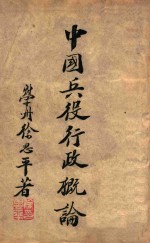 中國兵役行政概論
徐思平著